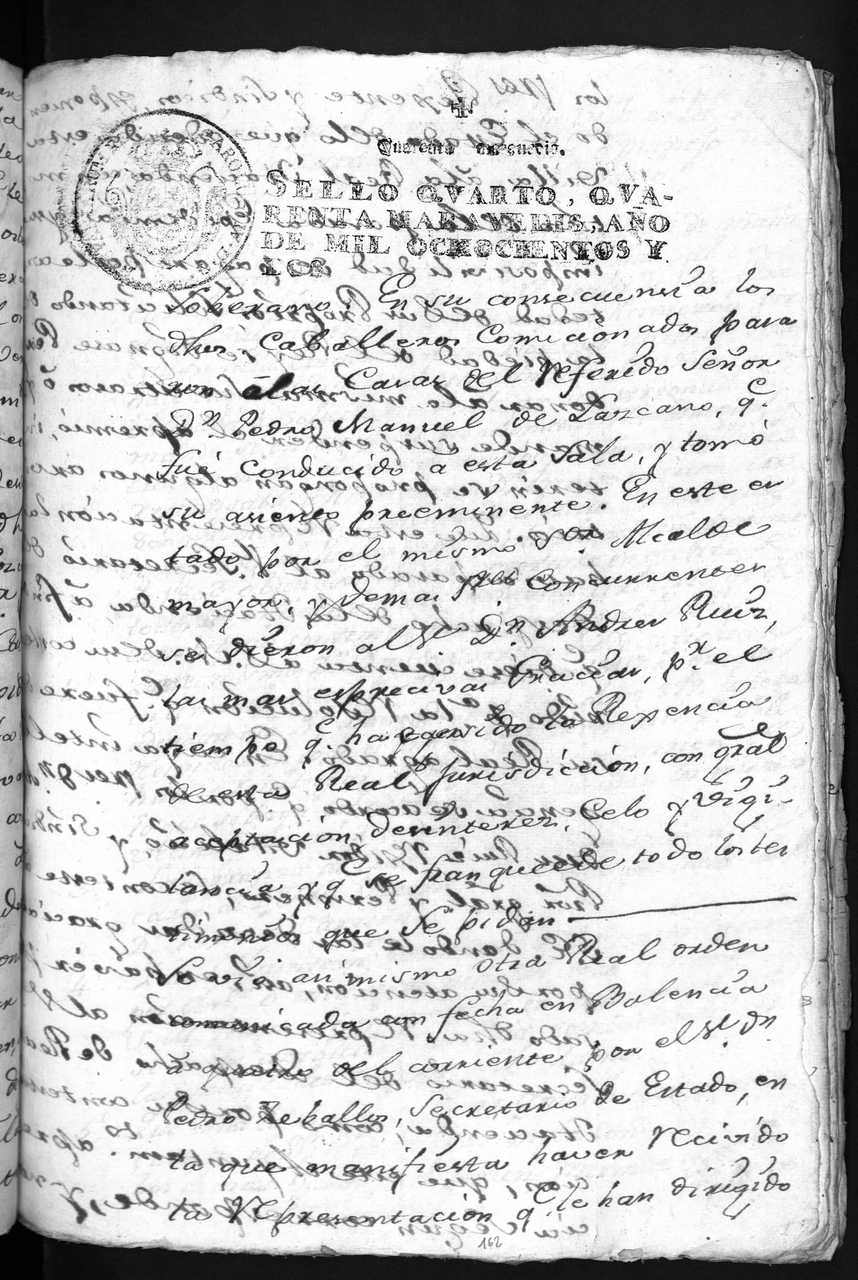 Quarenta maravedis.
SELLO QVARTO, QVA-
RENTA MARAVEDIS, AÑO
DE MIL OCHOCIENTOS Y
DOS.
Soberano. En su consecuensia los
dhos Caballeros Comicionados para
ron á las Casas del Referido Señor
Dn. Pedro Manuel de Lazcano, q.e
fué conducido a esta Sala, y tomó
su asiento preeminente. En este es
tado por el mismo Sor. Alcalde
mayor, y demas Sres concurrentes
se dieron al Sr. Dn. Andres Ruiz,
las mas esprecivas Gracias, pr. el
tiempo q.e ha egercido la Rexencia
de esta Real Jurisdiccion, con gral
aceptacion, desinteres, Celo y Vigi-
lancia y q.e se franqueede todo los tes
timonios que se pidan
Se vió asi mismo otra Real orden
comunicada con fecha en Balencia
a quatro del corriente por el Sr. Dn
Pedro Zeballos, Secretario de Estado, en
la que manifiesta haver Recivido
la Representación q.e le han dirigido
162